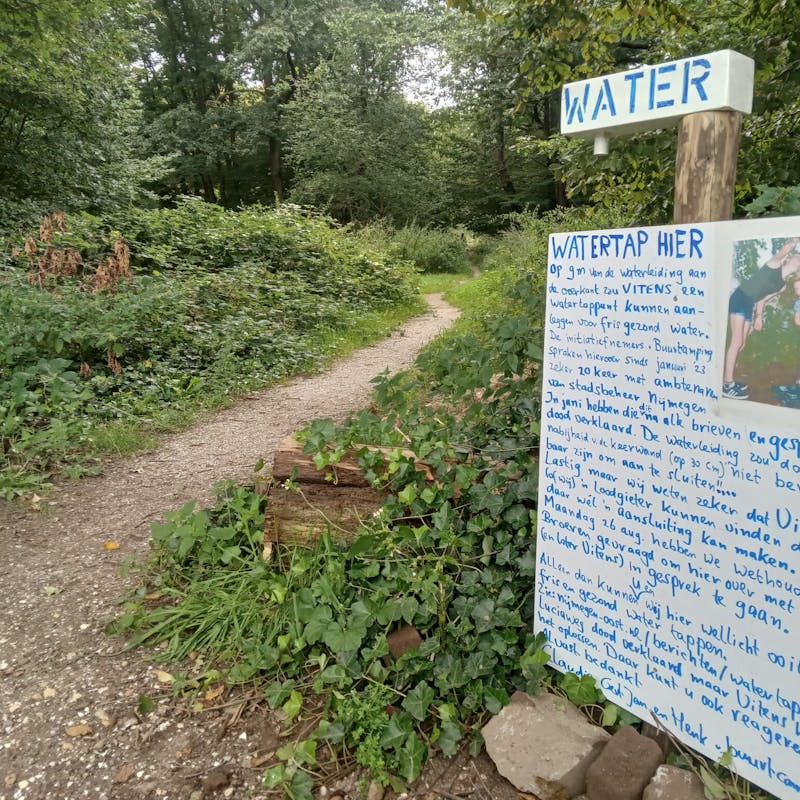 WATER
WATERTAP HIER
Op 9m van de waterleiding aan
de overkant zou VITENS een
watertappunt kunnen aan-
leggen voor fris gezond water.
De initiatiefnemers. Buurtcamping
spraken hierover sinds januari 23
zeker 20 keer met ambtenaren
van stadsbeheer Nijmegen.
In juni hebben die dit na alle brieven en gesp
dood verklaard. De waterleiding zou do
nabijheid v.d. keerwand (op 30 cm) niet ber
baar zijn om aan te sluiten!!...
Lastig maar wij weten zeker dat Vi
(of wij) 'n loodgieter kunnen vinden d
daar wél 'n aansluiting kan maken.
Maandag 26 aug. hebben we Wethoud
Broeren gevraagd om hier over met
(en later Vitens) in gesprek te gaan.
Alleen dan kunnen u en wij hier wellicht ooit
fris en gezond water tappen.
Zie: nijmegen-oost.nl/berichten/watertap
Luciaweg dood verklaard maar Vitens k
het oplossen. Daar kunt u ook reagere
Alvast bedankt
Claudia, Jan en Henk. buurtcam